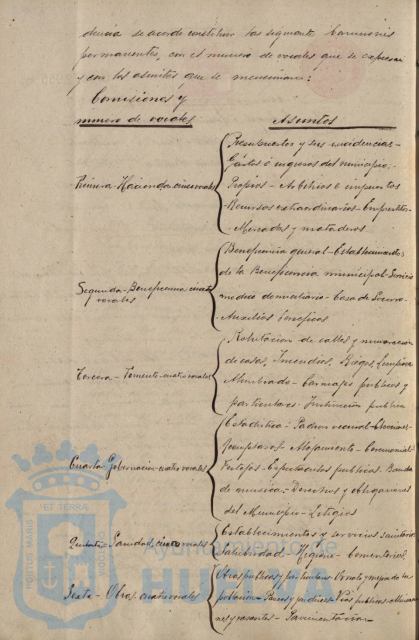 dencia se acordo constituir las siguientes Comisiones
permanentes, con el numero de vocales que se expresan
y con los asuntos que se mencionan:
Comisiones y
numero de vocales
Asuntos
Primera Hacienda cinco vocales
Presupuestos y sus incidencias-
Gastos é ingresos del municipio,
Propios - Arbitrios é impuestos
Recursos extraordinarios - Emprestitos-
Mercados y mataderos
Segunda - Beneficencia cuatro
vocales
Beneficencia general - Establecimientos
de la Beneficencia municipal - Servicio
medico domiciliario - Casa de Socorro
Auxilios beneficos
Tercera - Fomento - cuatro vocales
Rotulacion de calles y numeracion
de casas, Incendios, Riegos, Limpieza
Alumbrado - Carruajes publicos y
particulares - Instruccion publica
Cuarta Gobernacion - cuatro vocales
Estadistica - Padron vecinal - Elecciones
Alojamiento - Ceremonial
Festejos - Espectaculos publicos - Banda
de musica - Derechos y obligaciones
del Municipio - Litigios
Quinta - Sanidad, cuatro vocales
Establecimientos y servicios sanitarios
Salubridad - Higiene - Cementerios
Sexta - Obras, cuatro vocales
Obras publicas y particulares - Ornato y mejora de la
poblacion - Paseos y jardines - Vias publicas -
Pavimentacion-
PORTUS MARIS
ET TERRA
Ayuntamiento de